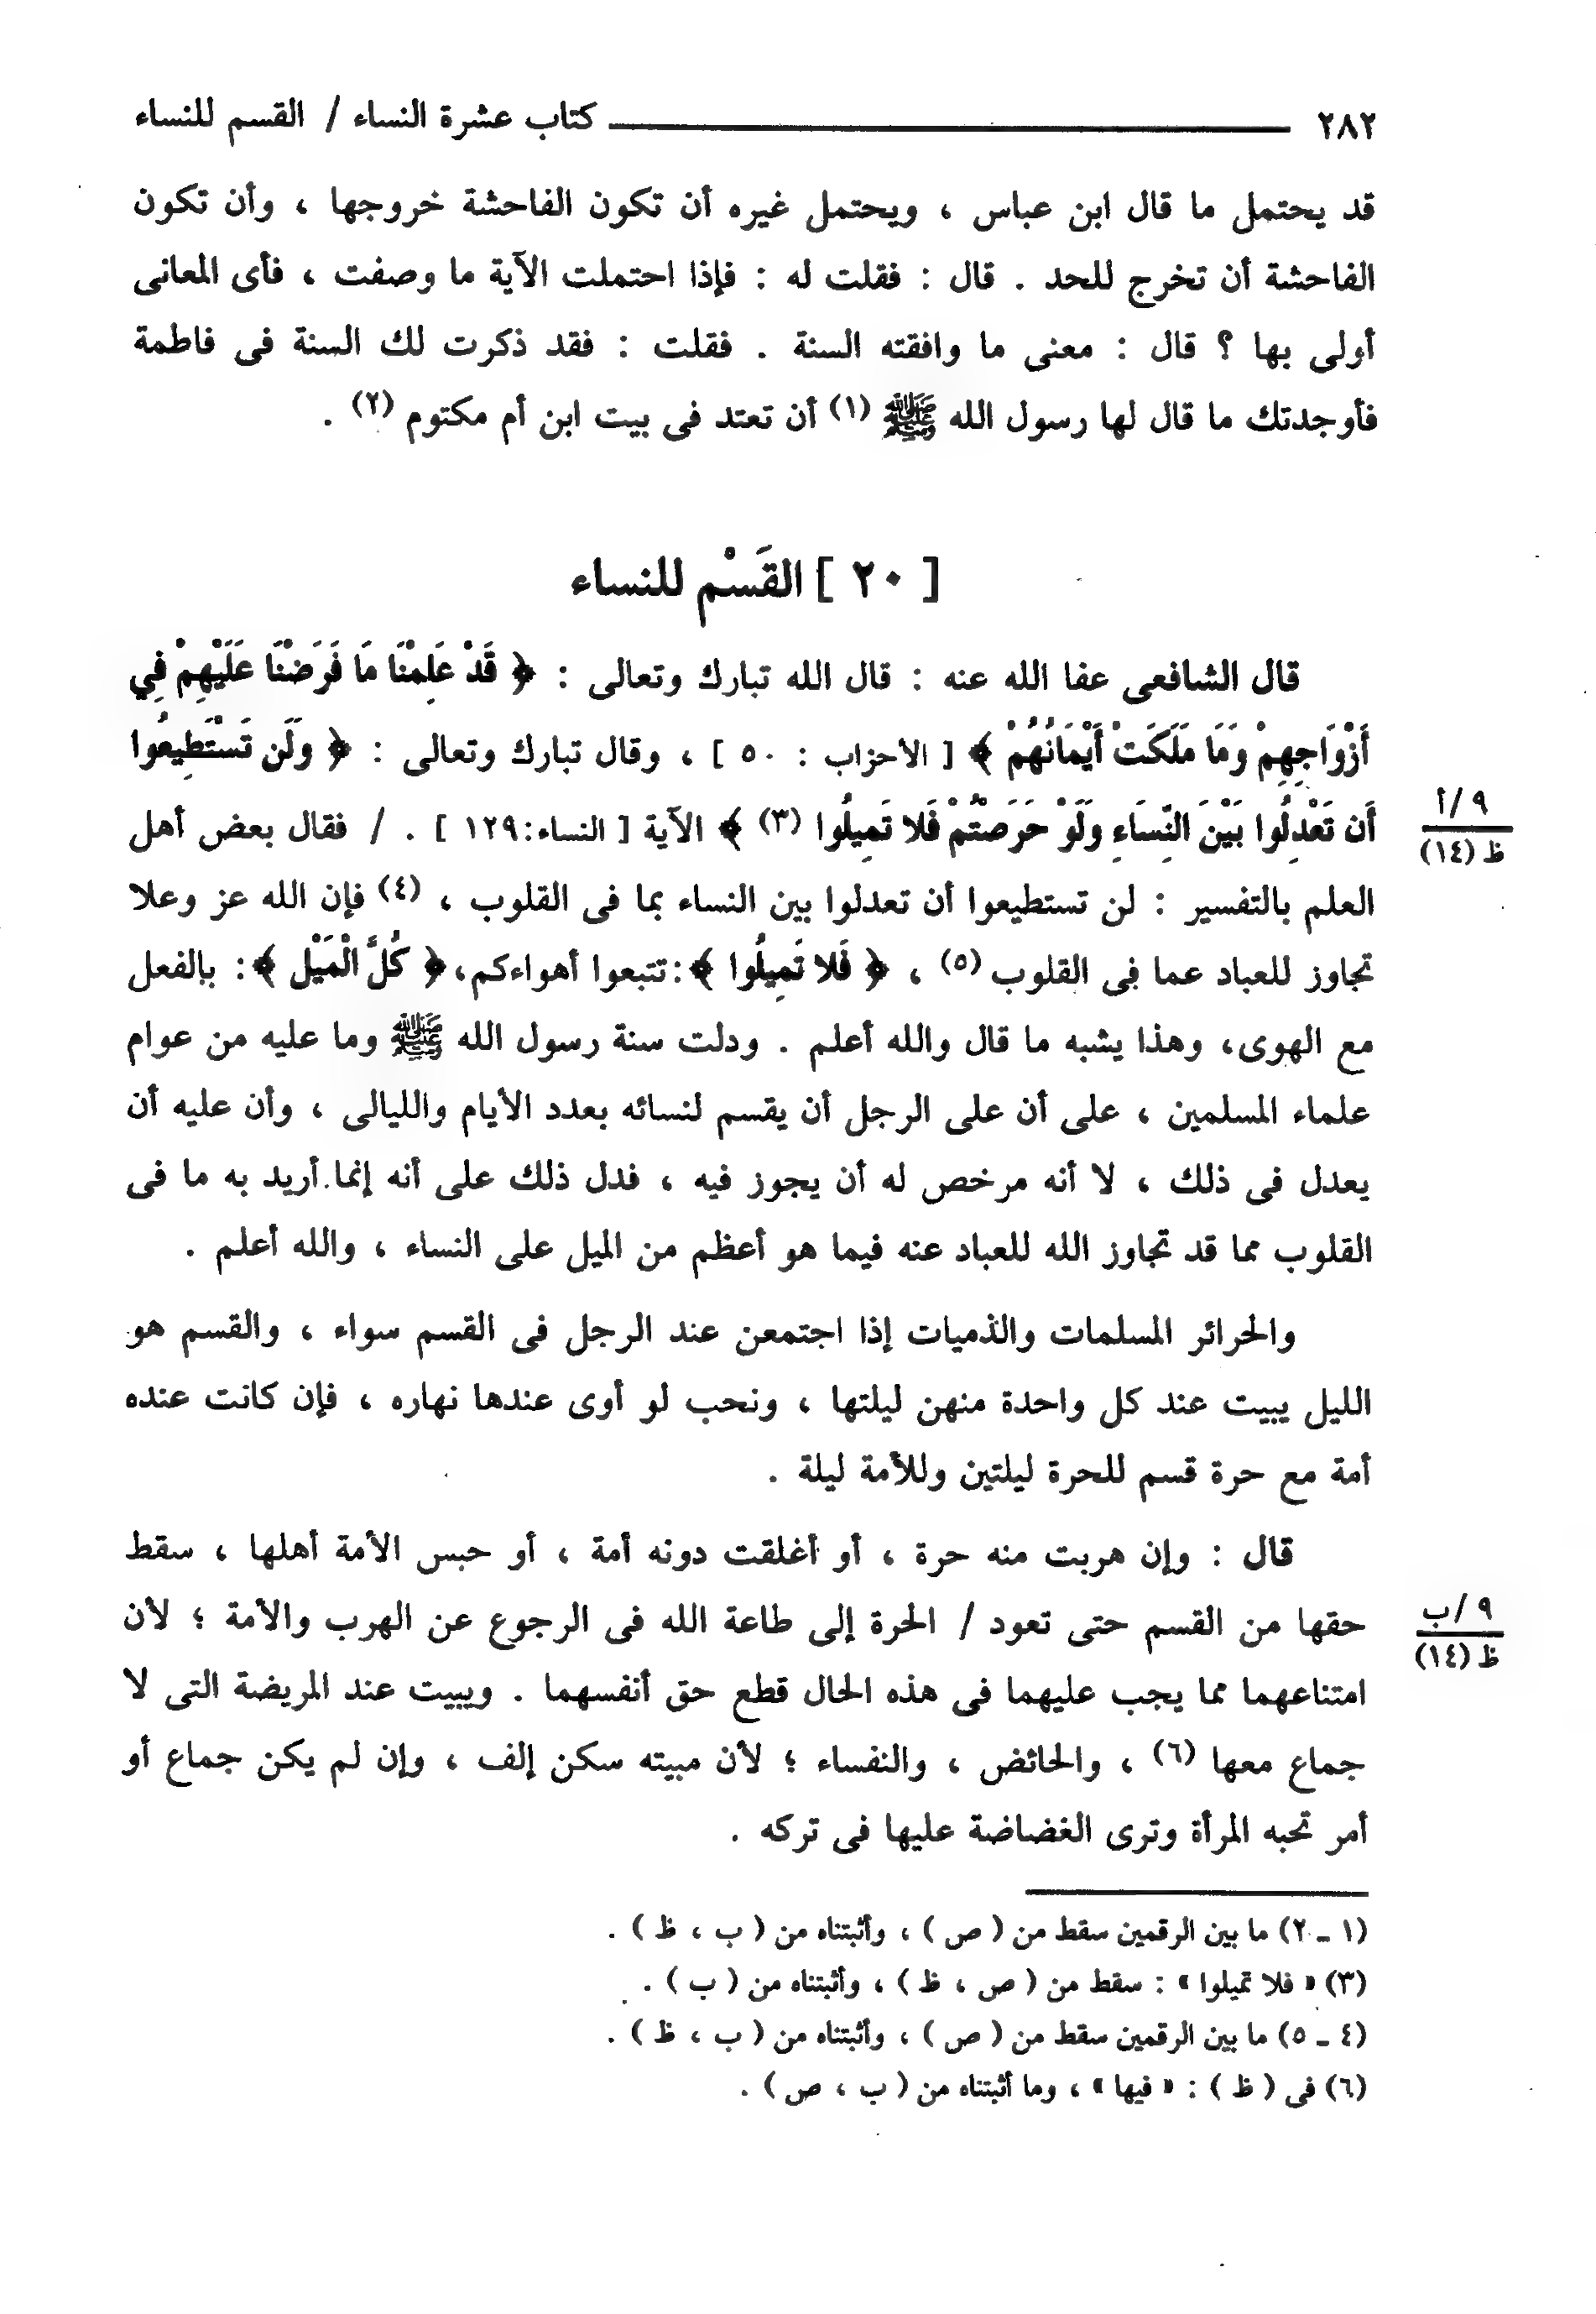 ٢٨٢ ــــــــ كتاب عشرة النساء / القسم للنساء
قد يحتمل ما قال ابن عباس ، ويحتمل غيره أن تكون الفاحشة خروجها ، وأن تكون
الفاحشة أن تخرج للحد . قال : فقلت له : فإذا احتملت الآية ما وصفت ، فأى المعانى
أولى بها ؟ قال : معنى ما وافقته السنة . فقلت : فقد ذكرت لك السنة فى فاطمة
فأوجدتك ما قال لها رسول الله ﷺ (١) أن تعتد فى بيت ابن أم مكتوم (٢) .
[ ٢٠ ] القَسْم للنساء
قال الشافعى عفا الله عنه : قال الله تبارك وتعالى : ﴿ قَدْ عَلِمْنَا مَا فَرَضْنَا عَلَيْهِمْ فِي
أَزْوَاجِهِمْ وَمَا مَلَكَتْ أَيْمَانُهُمْ ﴾ [ الأحزاب : ٥٠ ] ، وقال تبارك وتعالى : ﴿ وَلَن تَسْتَطِيعُوا
أَن تَعْدِلُوا بَيْنَ النِّسَاءِ وَلَوْ حَرَصْتُمْ فَلا تَمِيلُوا (٣) ﴾ الآية [ النساء: ١٢٩ ] . / فقال بعض أهل
٩ /أ
ظ (١٤)
العلم بالتفسير : لن تستطيعوا أن تعدلوا بين النساء بما فى القلوب ، (٤) فإن الله عز وعلا
تجاوز للعباد عما فى القلوب (٥) ، ﴿ فَلا تَمِيلُوا ﴾: تتبعوا أهواءكم، ﴿ كُلَّ الْمَيْلِ ﴾: بالفعل
مع الهوى، وهذا يشبه ما قال والله أعلم . ودلت سنة رسول الله ﷺ وما عليه من عوام
علماء المسلمين ، على أن على الرجل أن يقسم لنسائه بعدد الأيام والليالى ، وأن عليه أن
يعدل فى ذلك ، لا أنه مرخص له أن يجوز فيه ، فدل ذلك على أنه إنما أريد به ما فى
القلوب مما قد تجاوز الله للعباد عنه فيما هو أعظم من الميل على النساء ، والله أعلم .
والحرائر المسلمات والذميات إذا اجتمعن عند الرجل فى القسم سواء ، والقسم هو
الليل يبيت عند كل واحدة منهن ليلتها ، ونحب لو أوى عندها نهاره ، فإن كانت عنده
أمة مع حرة قسم للحرة ليلتين وللأمة ليلة .
قال : وإن هربت منه حرة ، أو أغلقت دونه أمة ، أو حبس الأمة أهلها ، سقط
حقها من القسم حتى تعود / الحرة إلى طاعة الله فى الرجوع عن الهرب والأمة ؛ لأن
٩ /ب
ظ (١٤)
امتناعهما مما يجب عليهما فى هذه الحال قطع حق أنفسهما . ويبيت عند المريضة التى لا
جماع معها (٦) ، والحائض ، والنفساء ؛ لأن مبيته سكن إلف ، وإن لم يكن جماع أو
أمر تحبه المرأة وترى الغضاضة عليها فى تركه .
(١ ـ ٢) ما بين الرقمين سقط من ( ص ) ، وأثبتناه من ( ب ، ظ ) .
(٣) « فلا تميلوا » : سقط من ( ص ، ظ ) ، وأثبتناه من ( ب ) .
(٤ ـ ٥) ما بين الرقمين سقط من ( ص ) ، وأثبتناه من ( ب ، ظ ) .
(٦) فى ( ظ ) : « فيها » ، وما أثبتناه من ( ب ، ص ) .